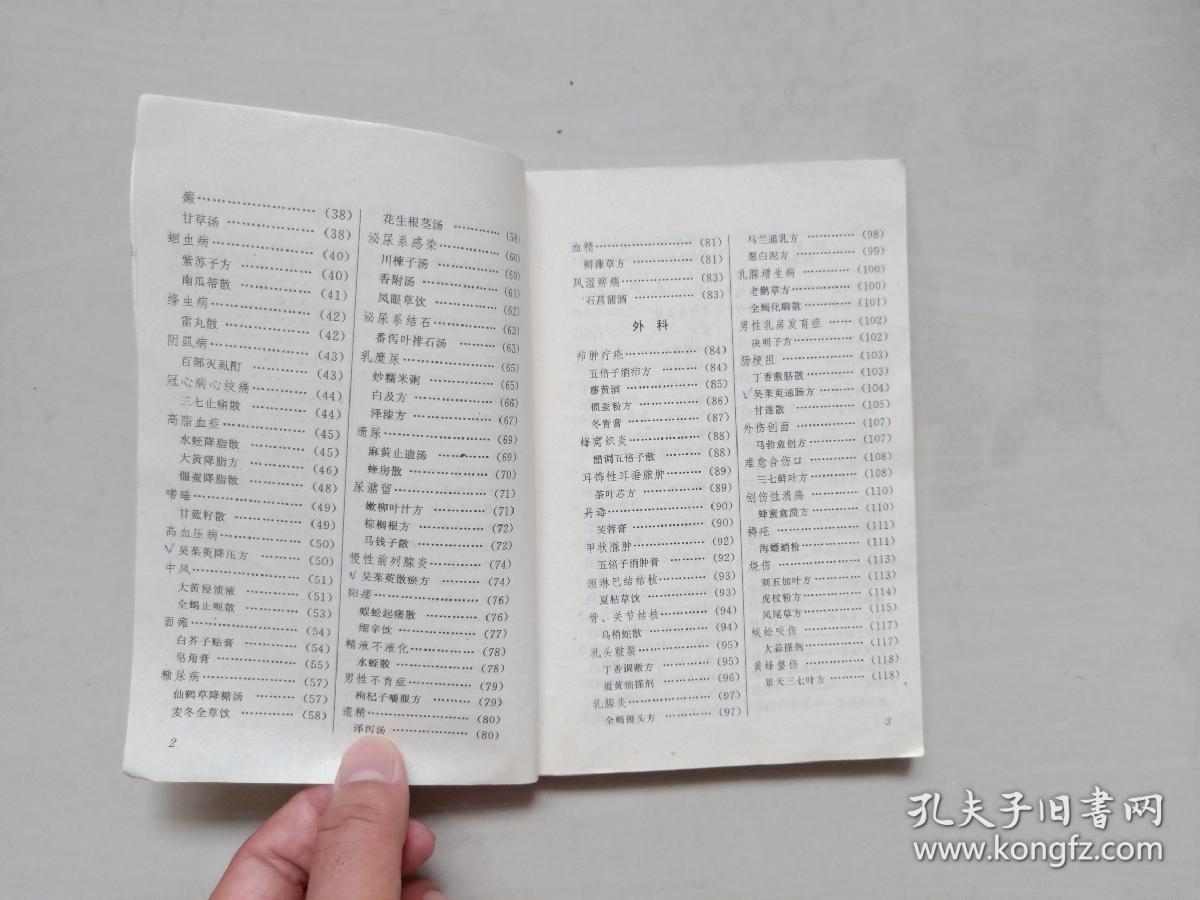 癫……………………(38)
甘草汤……………………(38)
蛔虫病……………………(40)
紫苏子方……………………(40)
南瓜蒂散……………………(41)
绦虫病……………………(42)
雷丸散……………………(42)
阴虱病……………………(43)
百部灭虱酊……………………(43)
冠心病心绞痛……………………(44)
三七止痛散……………………(44)
高脂血症……………………(45)
水蛭降脂散……………………(45)
大黄降脂方……………………(46)
僵蚕降脂散……………………(48)
嗜睡……………………(49)
甘蓝籽散……………………(49)
高血压病……………………(50)
✓吴茱萸降压方……………………(50)
中风……………………(51)
大黄浸渍液……………………(51)
全蝎止呃散……………………(53)
面瘫……………………(54)
白芥子贴膏……………………(54)
皂角膏……………………(55)
糖尿病……………………(57)
仙鹤草降糖汤……………………(57)
麦冬全草饮……………………(58)
2
花生根茎汤……………………(58)
泌尿系感染……………………(60)
川楝子汤……………………(60)
香附汤……………………(61)
凤眼草饮……………………(62)
泌尿系结石……………………(63)
番泻叶排石汤……………………(63)
乳糜尿……………………(65)
炒糯米粥……………………(65)
白及方……………………(66)
泽漆方……………………(67)
遗尿……………………(69)
麻黄止遗汤……………………(69)
蜂房散……………………(70)
尿潴留……………………(71)
嫩柳叶汁方……………………(71)
棕榈根方……………………(72)
马钱子散……………………(72)
慢性前列腺炎……………………(74)
✓吴茱萸散瘀方……………………(74)
阳痿……………………(76)
蜈蚣起痿散……………………(76)
细辛饮……………………(77)
精液不液化……………………(78)
水蛭散……………………(78)
男性不育症……………………(79)
枸杞子嚼服方……………………(79)
遗精……………………(80)
泽泻汤……………………(80)
血精……………………(81)
鲜葎草方……………………(81)
风湿痹痛……………………(83)
石菖蒲酒……………………(83)
外科
疖肿疔疮……………………(84)
五倍子消疖方……………………(84)
藤黄酒……………………(85)
僵蚕粉方……………………(86)
冬青膏……………………(87)
蜂窝织炎……………………(88)
醋调五倍子散……………………(88)
耳饰性耳垂脓肿……………………(89)
茶叶芯方……………………(89)
丹毒……………………(90)
芙蓉膏……………………(90)
甲状腺肿……………………(92)
五倍子消肿膏……………………(92)
颈淋巴结结核……………………(93)
夏枯草饮……………………(93)
骨、关节结核……………………(94)
乌梢蛇散……………………(94)
乳头皲裂……………………(95)
丁香调敷方……………………(95)
蛋黄油搽剂……………………(96)
乳腺炎……………………(97)
全蝎馒头方……………………(97)
马兰通乳方……………………(98)
葱白泥方……………………(99)
乳腺增生病……………………(100)
老鹳草方……………………(100)
全蝎化癖散……………………(101)
男性乳房发育症……………………(102)
决明子方……………………(102)
肠梗阻……………………(103)
丁香敷脐散……………………(103)
✓吴茱萸通肠方……………………(104)
甘遂散……………………(105)
外伤创面……………………(107)
马勃愈创方……………………(107)
难愈合伤口……………………(108)
三七鲜叶方……………………(108)
创伤性溃疡……………………(110)
蜂蜜愈溃方……………………(110)
褥疮……………………(111)
海螵蛸粉……………………(111)
烧伤……………………(113)
刺五加叶方……………………(113)
虎杖粉方……………………(114)
凤尾草方……………………(115)
蜈蚣咬伤……………………(117)
大蒜搽剂……………………(117)
黄蜂螫伤……………………(118)
景天三七叶方……………………(118)
3
孔夫子旧书网
www.kongfz.com